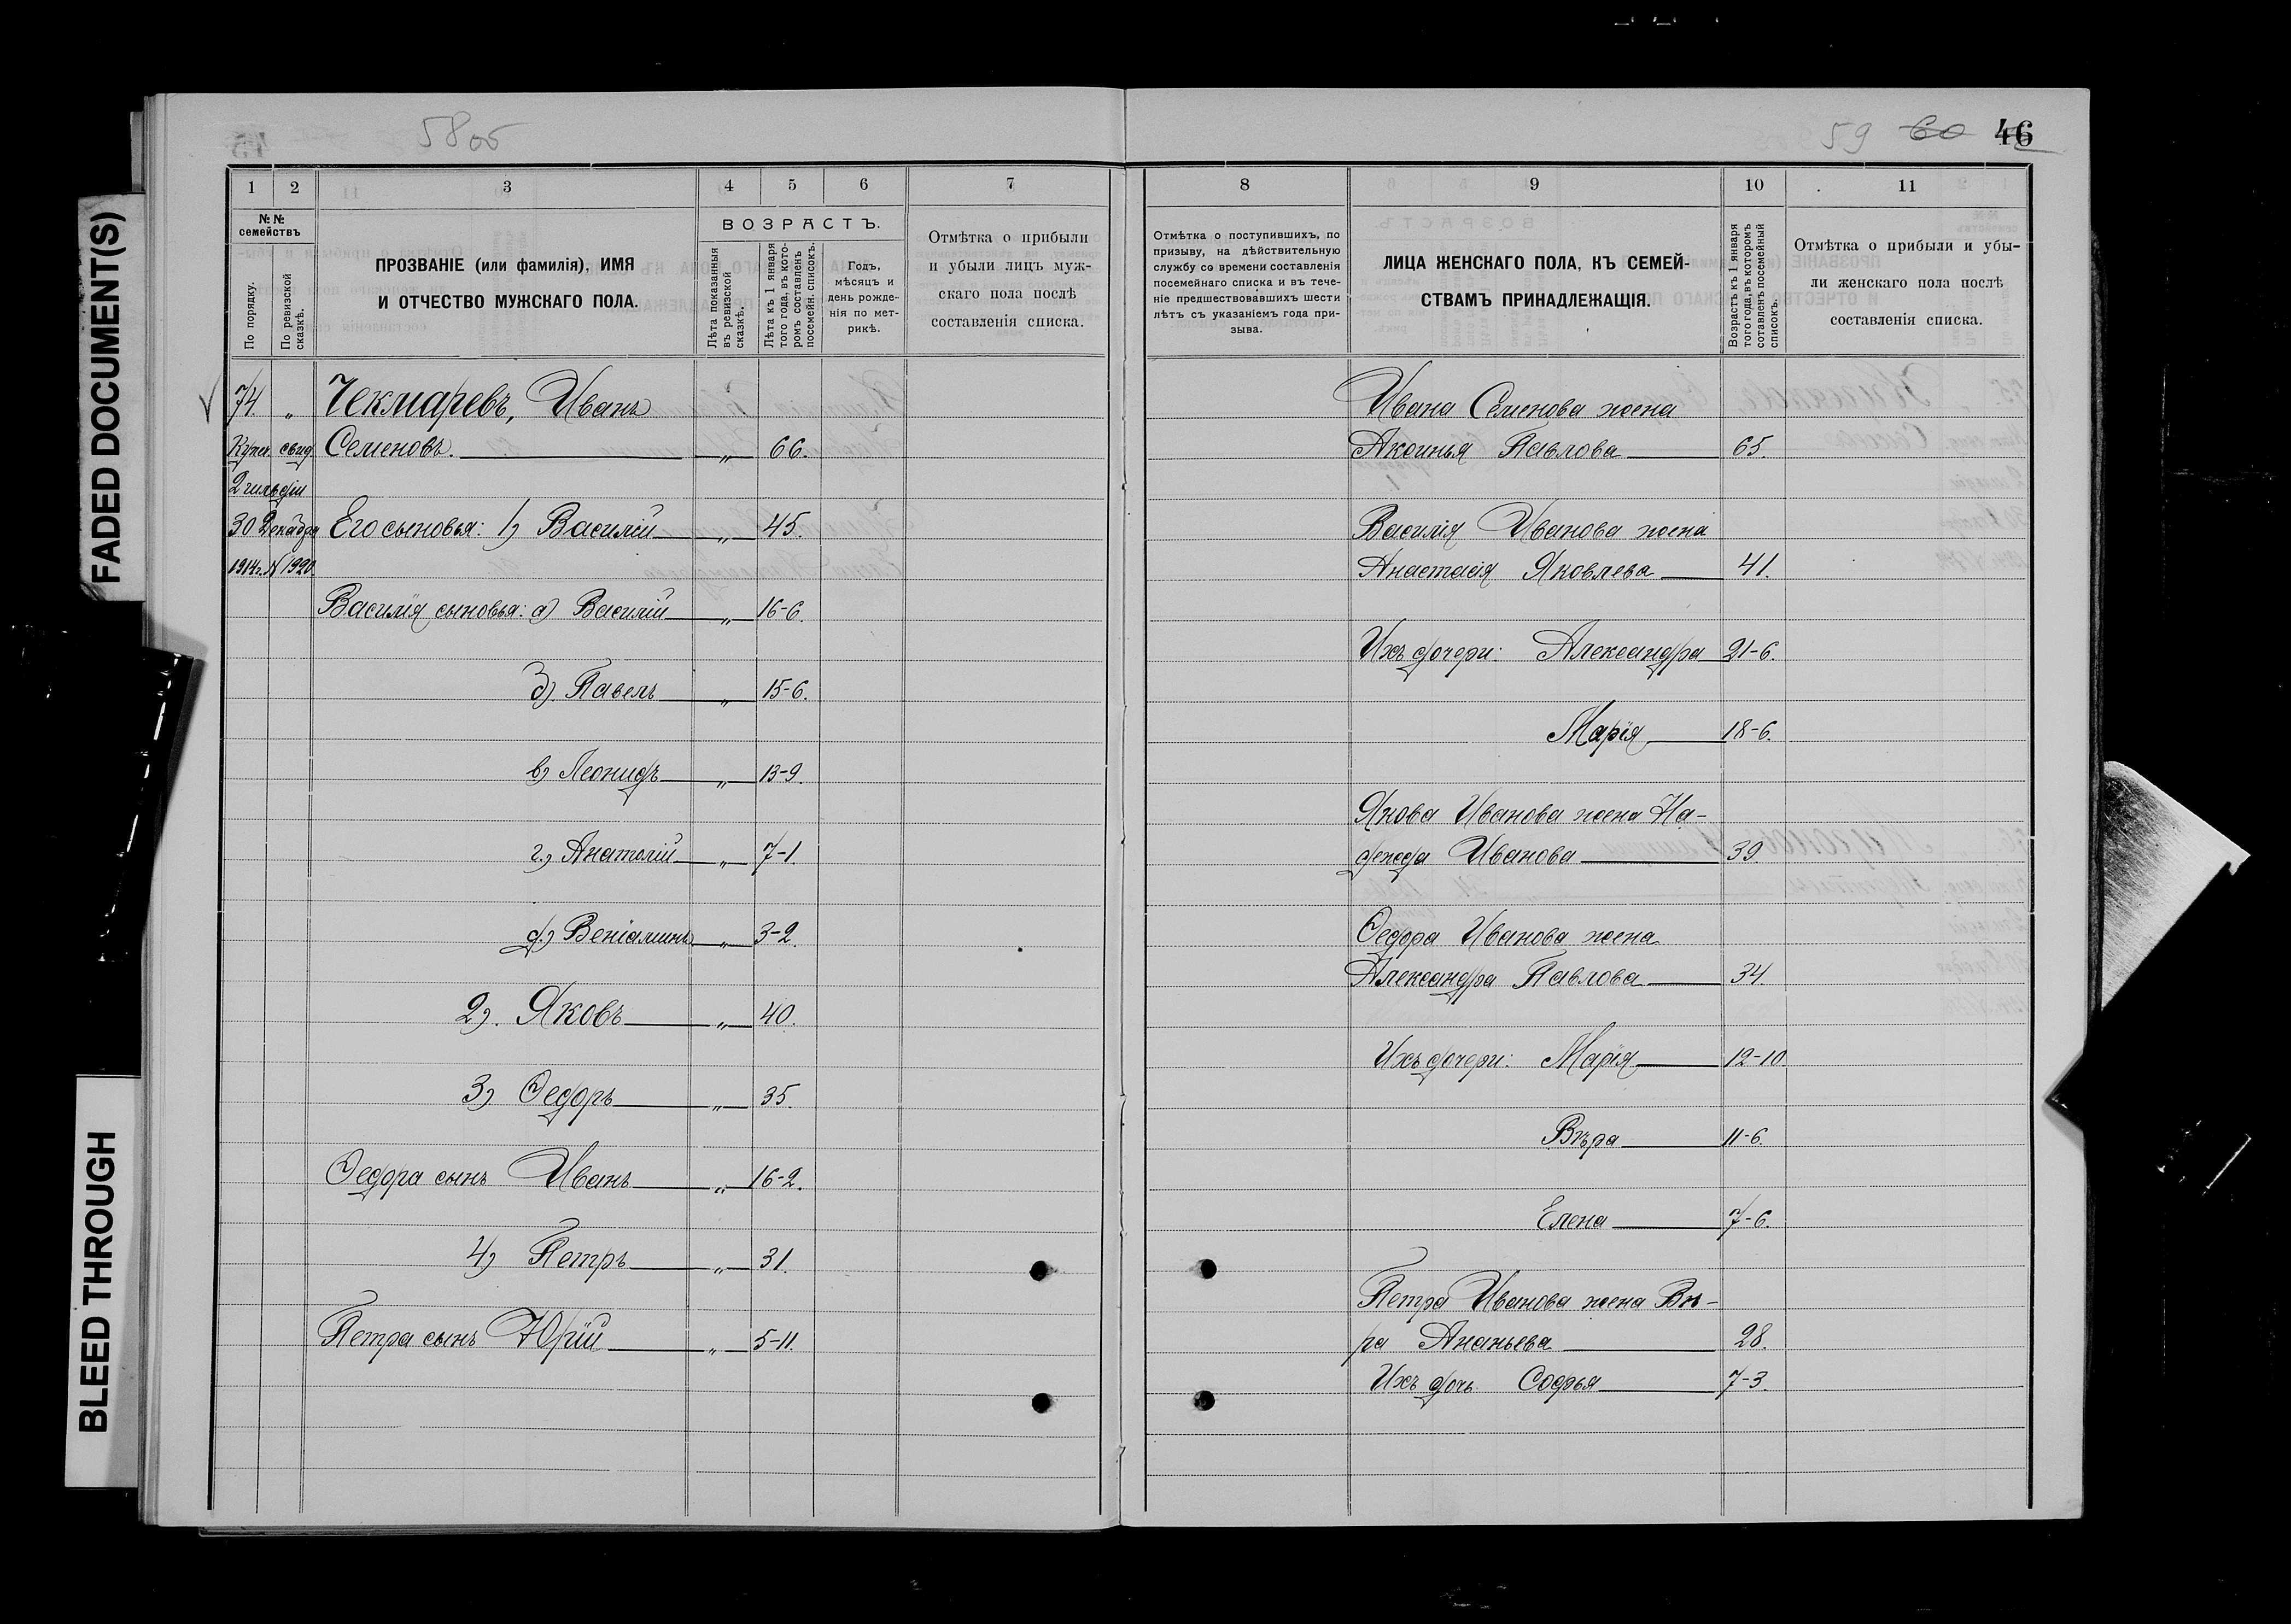 FADED DOCUMENT(S)
BLEED THROUGH
58об
1 2 3 4 5 6 7
№№ семействъ
По порядку.
По ревизской сказкѣ.
ПРОЗВАНІЕ (или фамилія), ИМЯ
И ОТЧЕСТВО МУЖСКАГО ПОЛА.
ВОЗРАСТЪ.
Лѣта показанныя въ ревизской сказкѣ.
Лѣта къ 1 января того года, въ которомъ составленъ посемейн. списокъ.
Годъ, мѣсяцъ и день рожденія по метрикѣ.
Отмѣтка о прибыли
и убыли лицъ муж-
скаго пола послѣ
составленія списка.
74. „ Чекмаревъ, Иванъ
Купеч. свид. Семеновъ. „ 66.
2 гильдіи
30 Декабря Его сыновья: 1) Василій „ 45.
1914г. № 1920.
Василія сыновья: а) Василій „ 16-6.
б) Павелъ „ 15-6.
в) Леонидъ „ 13-9.
г) Анатолій „ 7-1.
д) Веніаминъ „ 3-2.
2). Яковъ „ 40.
3) Ѳедоръ „ 35.
Ѳедора сынъ Иванъ „ 16-2.
4) Петръ „ 31.
Петра сынъ Юрій „ 5-11.
59 60 46
8 9 10 11
Отмѣтка о поступившихъ, по
призыву, на дѣйствительную
службу со времени составленія
посемейнаго списка и въ тече-
ніе предшествовавшихъ шести
лѣтъ съ указаніемъ года при-
зыва.
ЛИЦА ЖЕНСКАГО ПОЛА, КЪ СЕМЕЙ-
СТВАМЪ ПРИНАДЛЕЖАЩІЯ.
Возрастъ къ 1 января того года, въ которомъ составленъ посемейный списокъ.
Отмѣтка о прибыли и убы-
ли женскаго пола послѣ
составленія списка.
Ивана Семенова жена
Аксинья Павлова 65.
Василія Иванова жена
Анастасія Яковлева 41.
Ихъ дочери: Александра 21-6.
Марія 18-6.
Якова Иванова жена На-
дежда Иванова 39.
Ѳедора Иванова жена
Александра Павлова 34.
Ихъ дочери: Марія 12-10.
Вѣра 11-6.
Елена 7-6.
Петра Иванова жена Вѣ-
ра Ананьева 28.
Ихъ дочь Софья 7-3.